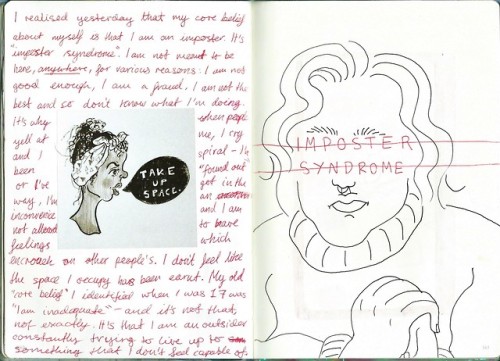 I realised yesterday that my core belief
about myself is that I am an imposter. It's
"imposter syndrome". I am not meant to be
here, anywhere, for various reasons: I am not
good enough, I am a fraud, I am not the
best and so don't know what I'm doing.
It's why when people
yell at me, I cry
and I spiral - I've
been "found out"
or I've got in the
way. I'm an
inconvenience and I am
not allowed to have
feelings which
encroach on other people's. I don't feel like
the space I occupy has been earnt. My old
"core belief" I identified when I was 17 was
"I am inadequate" - and it's not that,
not exactly. It's that I am an outsider
constantly trying to live up to
something that I don't feel capable of.
TAKE
UP
SPACE.
IMPOSTER
SYNDROME